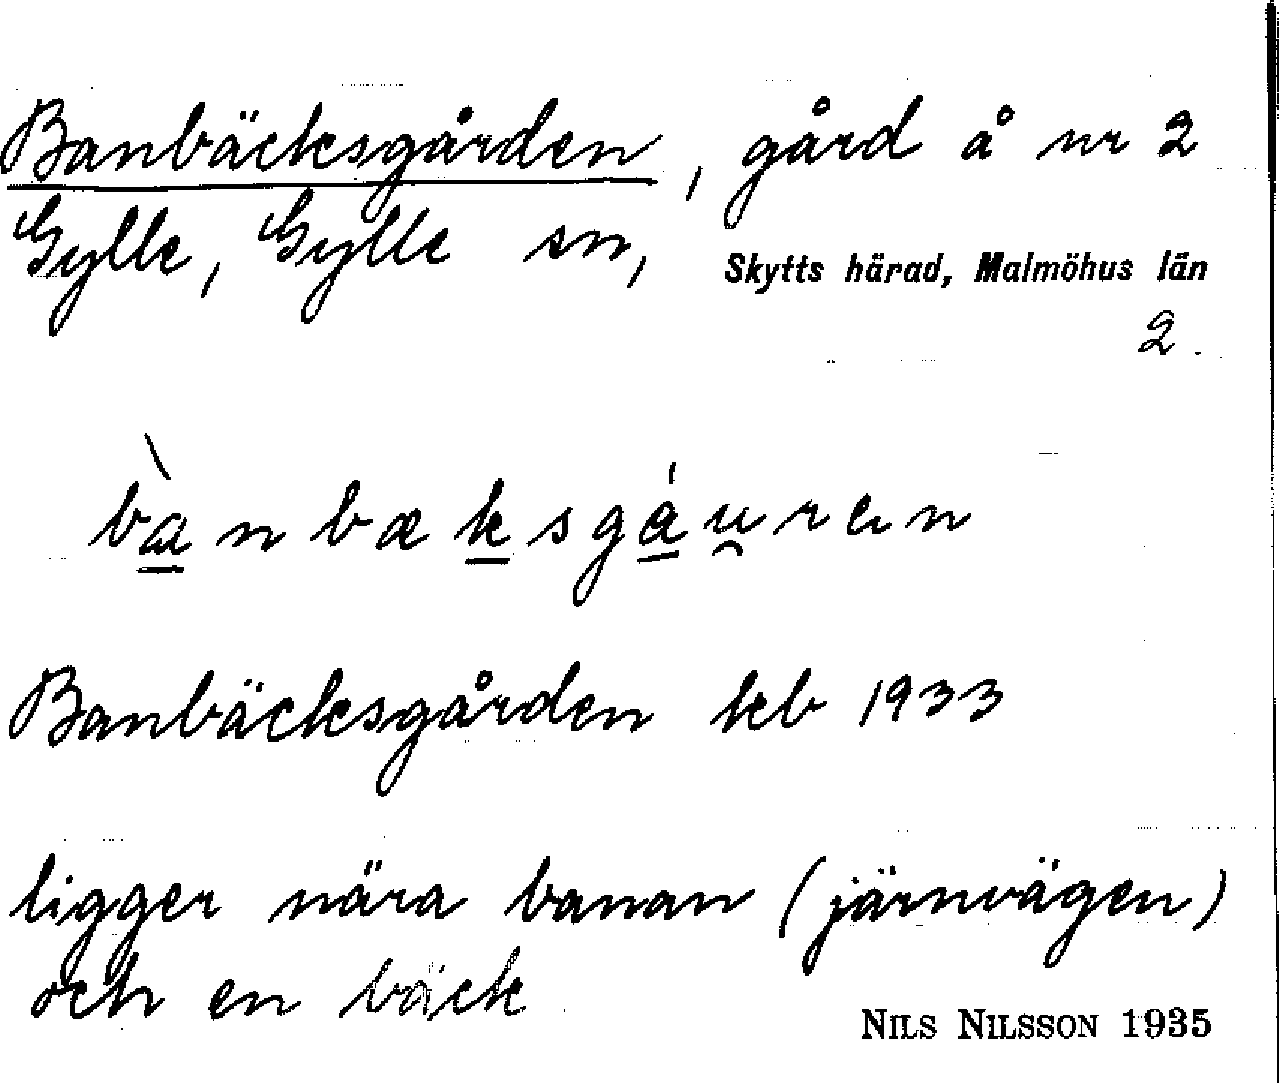 Banbäcksgården, gård å nr 2
Gylle, Gylle sn, Skytts härad, Malmöhus län
2.
bànbæksgáu̯ren
Banbäcksgården kb 1933
ligger nära banan (järnvägen)
och en bäck
NILS NILSSON 1935